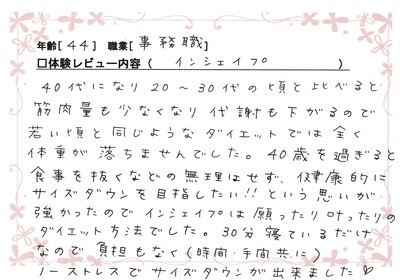 年齢[ 44 ] 職業[ 事務職 ]
□体験レビュー内容 ( インシェイプ )
40代になり20～30代の頃と比べると
筋肉量も少なくなり代謝も下がるので
若い頃と同じようなダイエットでは全く
体重が落ちませんでした。40歳を過ぎると
食事を抜くなどの無理はせず、健康的に
サイズダウンを目指したい!!という思いが
強かったのでインシェイプは願ったり叶ったりの
ダイエット方法でした。30分寝ているだけ
なので負担もなく(時間・手間共に)
ノーストレスでサイズダウンが出来ました♡